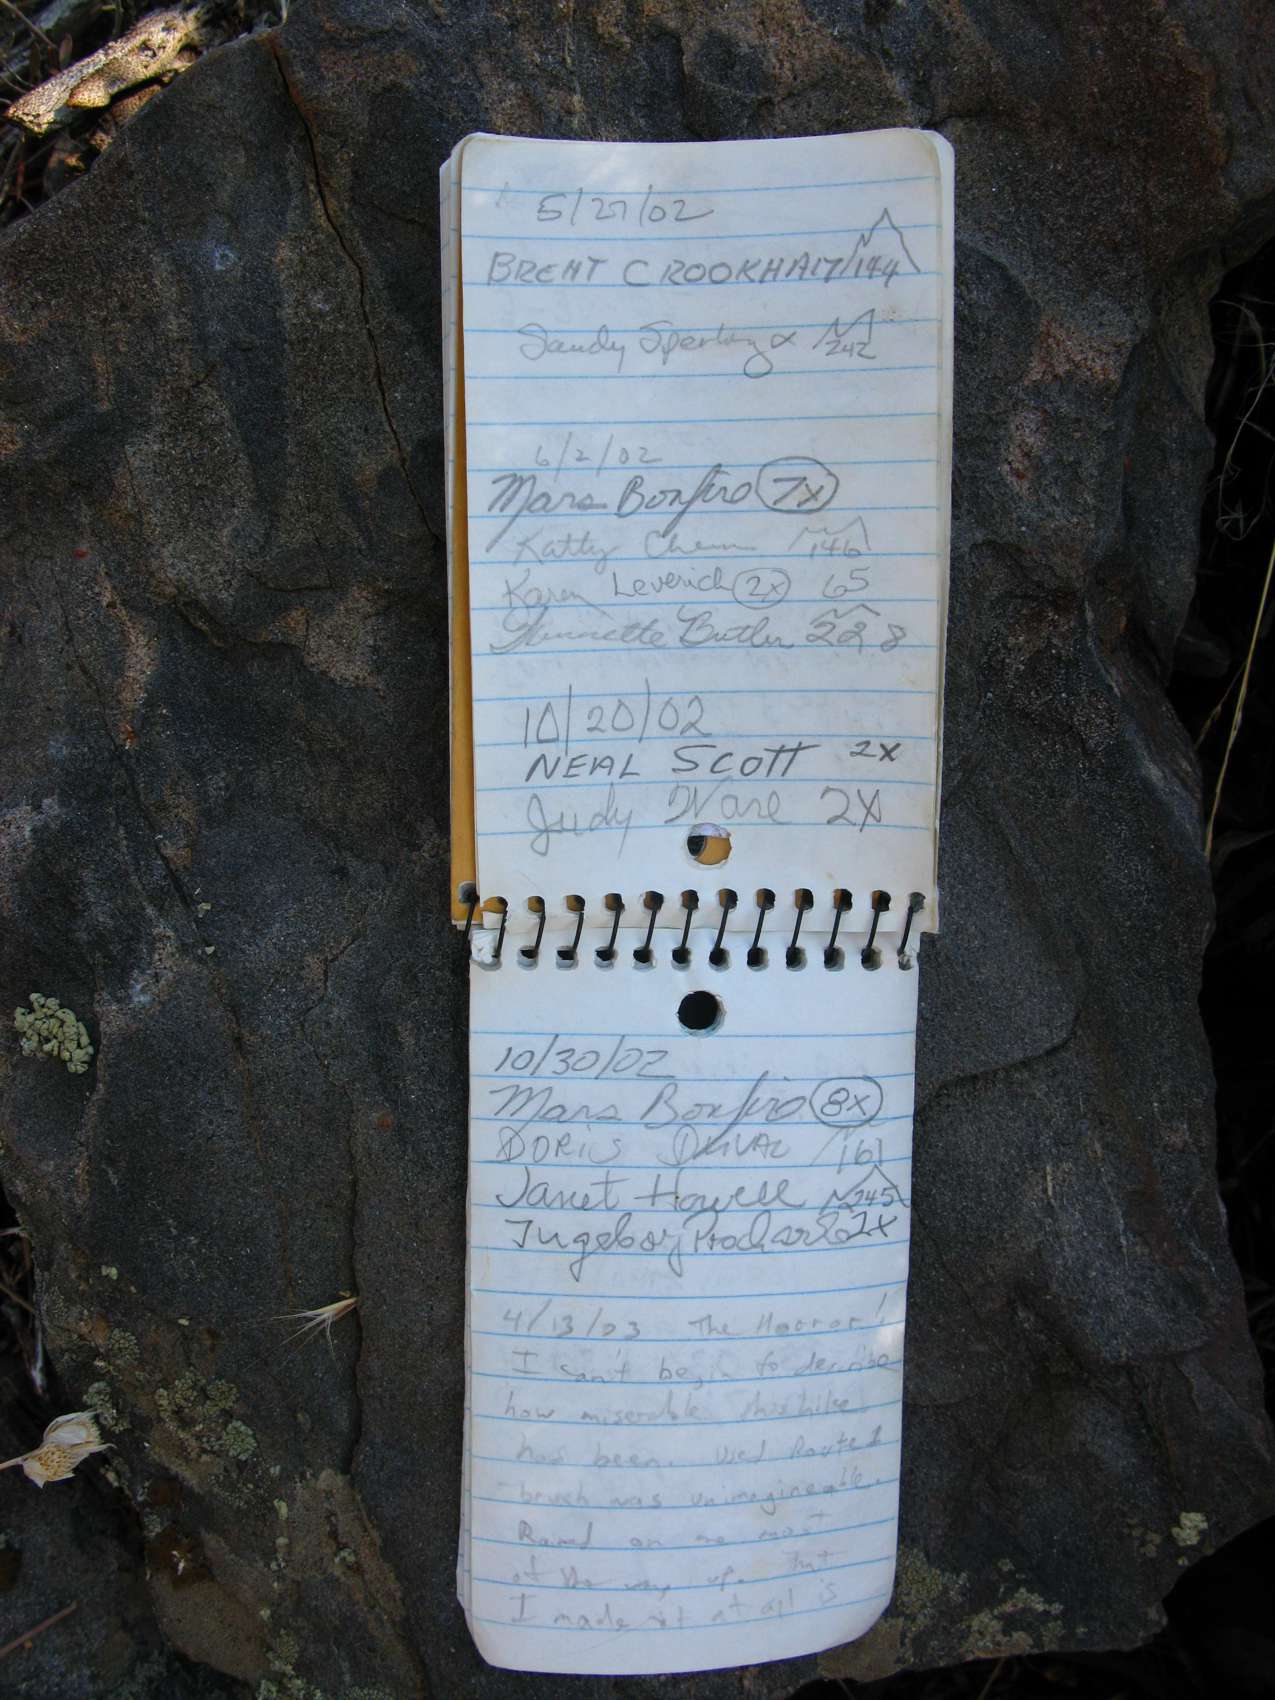 5/27/02
BRENT CROOKHAM 144
Sandy Sperling 242
6/2/02
Mars Bonfire 7x
Kathy Cheever 146
Karen Leverich 2x 65
Henriette Butler 228
10/20/02
NEAL SCOTT 2x
Judy Ware 2X
10/30/02
Mars Bonfire 8x
DORIS DUVAL 161
Janet Howell 245
Ingeborg Prochazka 2x
4/13/03 The Horror!
I can't begin to describe
how miserable this hike
has been. Used Route 1
brush was unimagineable.
Rained on me most
of the way up. That
I made it at all is